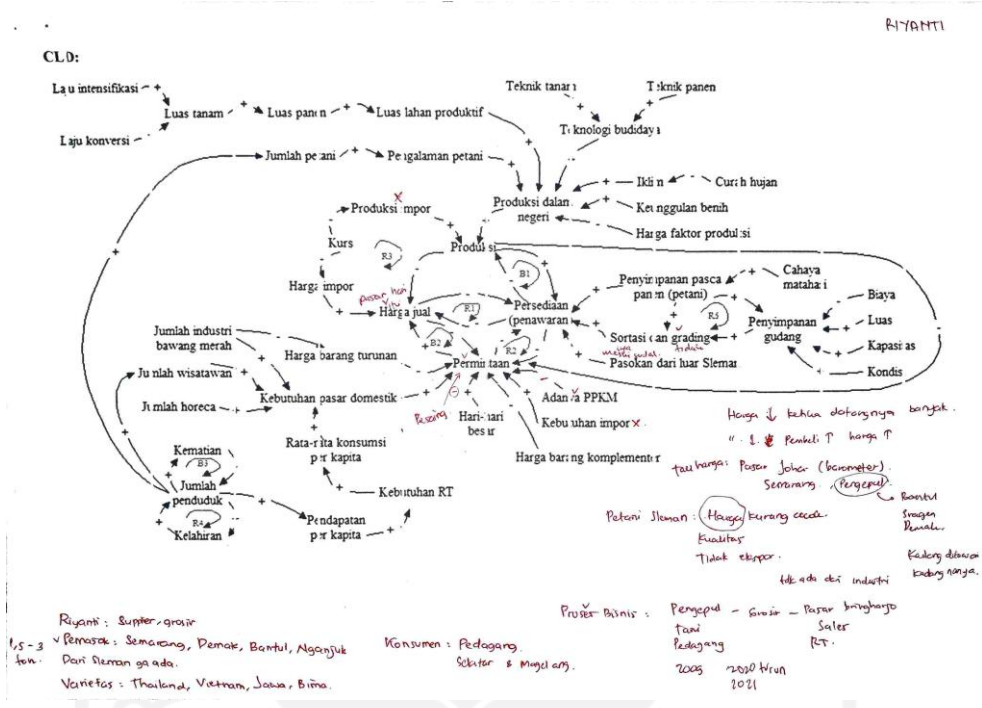 RIYANTI
CLD:
Laju intensifikasi
Laju konversi
Luas tanam
Luas panen
Luas lahan produktif
Teknik tanam
Teknik panen
Teknologi budidaya
Jumlah petani
Pengalaman petani
Produksi dalam
negeri
Iklim
Curah hujan
Keunggulan benih
Harga faktor produksi
Produksi impor
X
Kurs
R3
Produksi
B1
Harga impor
pasar hari
itu
Harga jual
R1
B2
R2
Persediaan
(penawaran
Penyimpanan pasca
panen (petani)
Cahaya
matahari
R5
Sortasi dan grading
tidak
Penyimpanan
gudang
Biaya
Luas
Kapasitas
Kondisi
Pasokan dari luar Sleman
Jumlah industri
bawang merah
Harga barang turunan
Permintaan
Jumlah wisatawan
Kebutuhan pasar domestik
Jumlah horeca
Pesaing
Hari-hari
besar
Adanya PPKM
Kebutuhan impor X
Harga barang komplementer
Rata-rata konsumsi
per kapita
Kebutuhan RT
Kematian
B3
Jumlah
penduduk
R4
Kelahiran
Pendapatan
per kapita
Harga ↓ ketika datangnya banyak.
Pembeli ↑ harga ↑
tau harga: Pasar Johar (barometer).
Semarang, Pengepul
Bantul
Sragen
Demak.
Petani Sleman: Harga kurang cocok.
Kualitas
Tidak ekspor.
Kadang ditawari
kadang nanya.
tdk ada dri industri
Riyanti: Suplier, grosir
1,5-3
ton.
Pemasok: Semarang, Demak, Bantul, Nganjuk
Dari Sleman ga ada.
Varietas: Thailand, Vietnam, Jawa, Bima.
Konsumen: Pedagang.
Sekitar & Magelang.
Proses Bisnis: Pengepul - Grosir - Pasar bringharjo
Tani
Pedagang
Sales
RT.
2009
2020 turun
2021